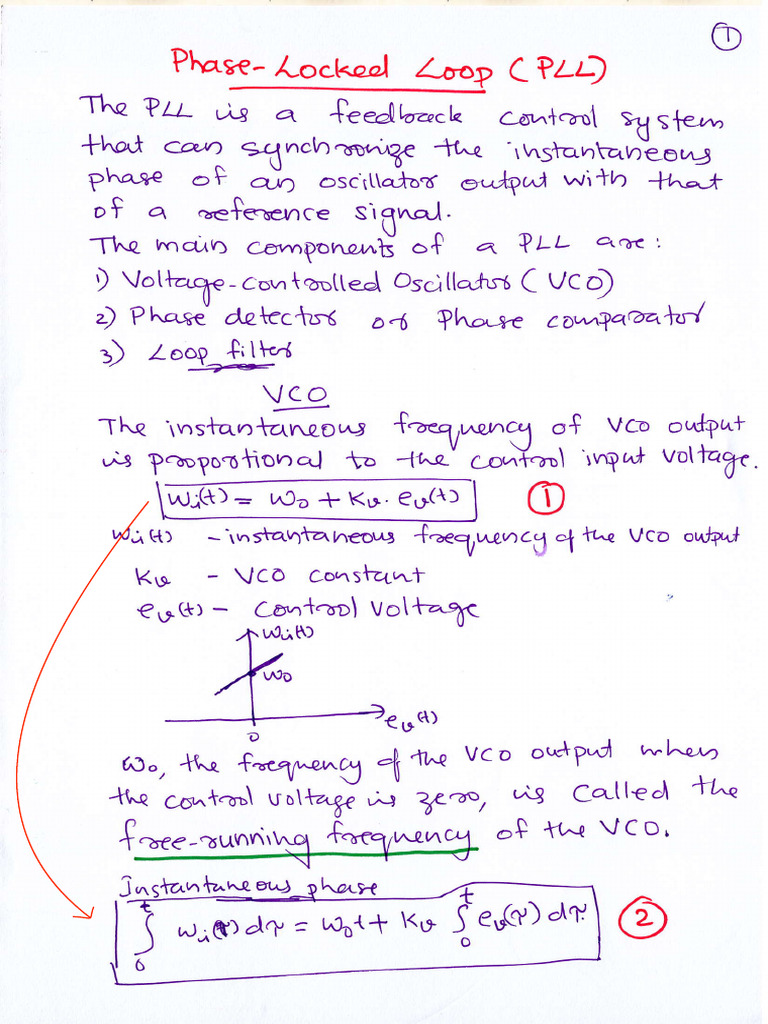 ①
Phase-Locked Loop (PLL)
The PLL is a feedback control system
that can synchronize the instantaneous
phase of an oscillator output with that
of a reference signal.
The main components of a PLL are:
1) Voltage-controlled Oscillator (VCO)
2) Phase detector or Phase comparator
3) Loop filter
VCO
The instantaneous frequency of VCO output
is proportional to the control input voltage.
ωi(t) = ω0 + kv. ev(t) ①
ωi(t) - instantaneous frequency of the VCO output
kv - VCO constant
ev(t) - control voltage
ωi(t)
ω0
ev(t)
0
ω0, the frequency of the VCO output when
the control voltage is zero, is called the
free-running frequency of the VCO.
Instantaneous phase
∫₀ᵗ ωi(τ) dτ = ω0t + kv ∫₀ᵗ ev(τ) dτ. ②